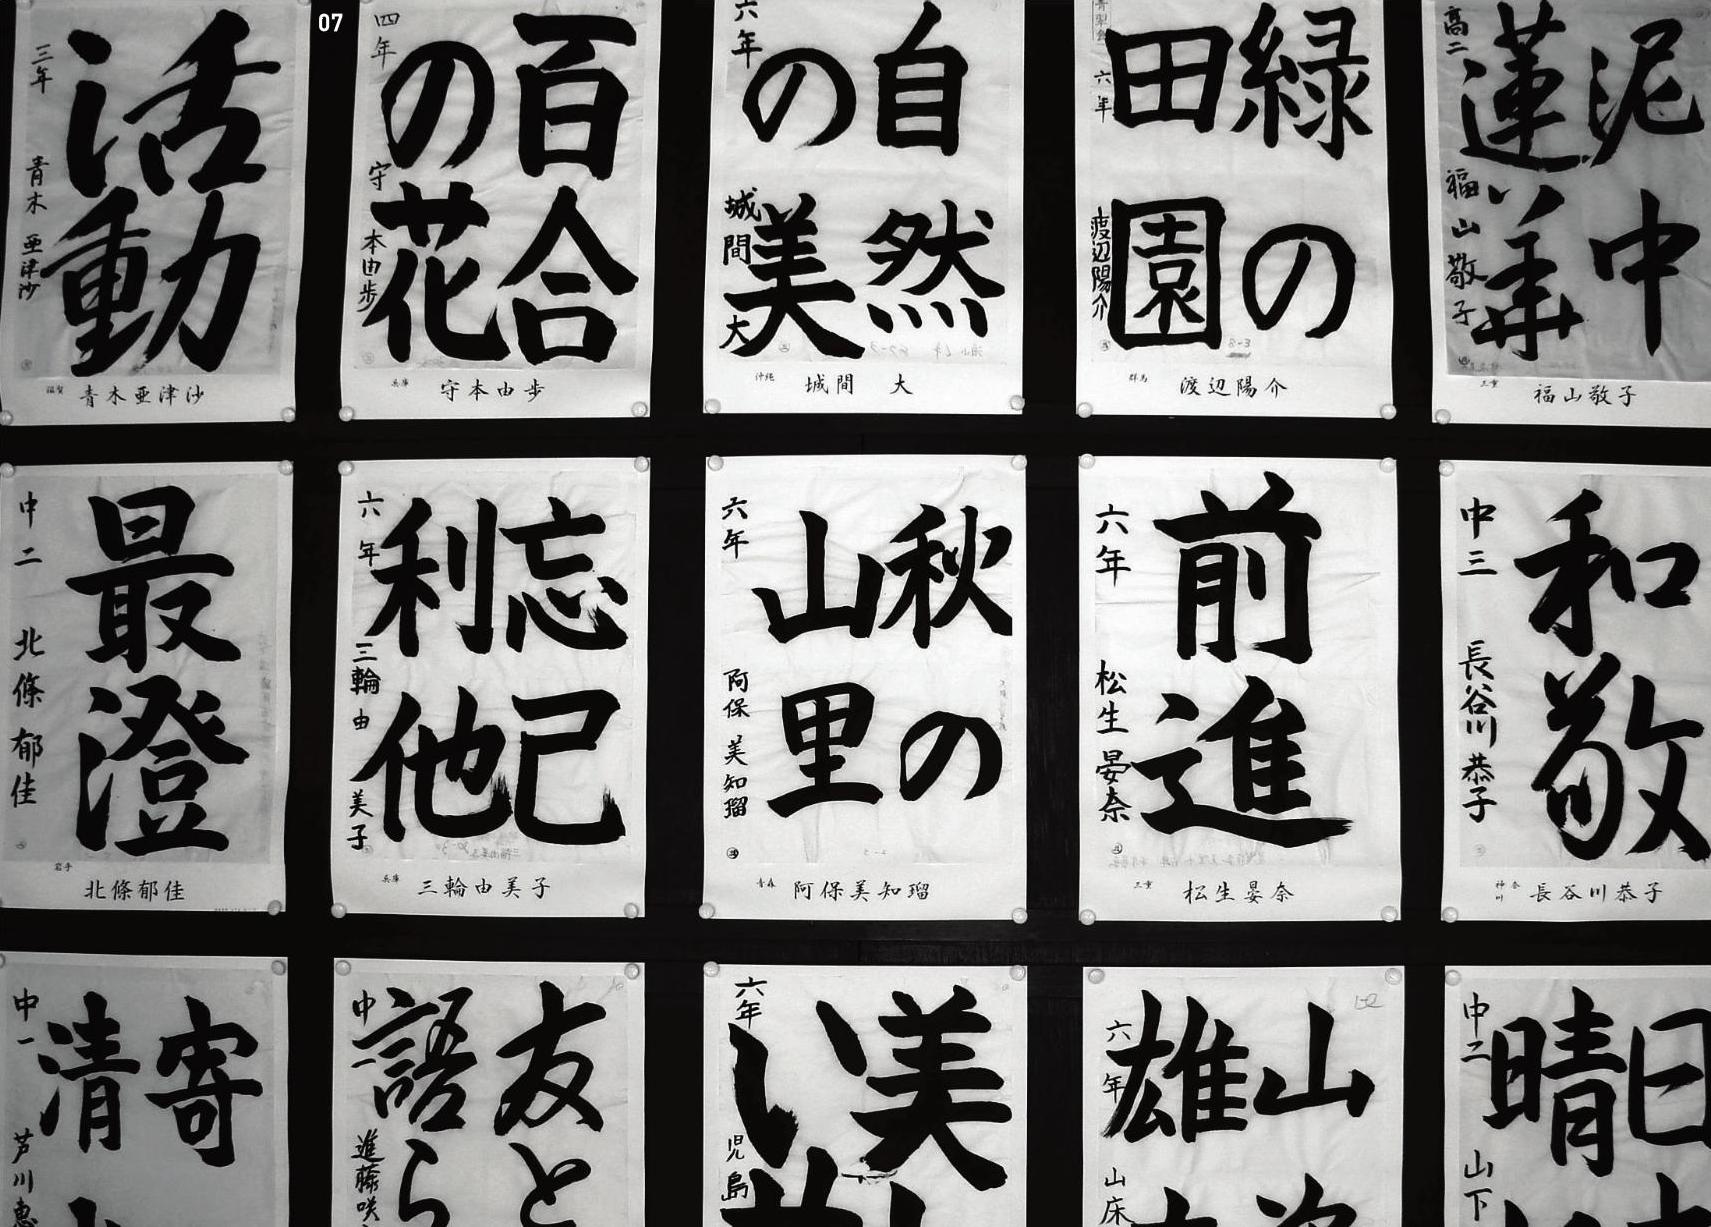 07
活動
三年 青木亜津沙
滋賀 青木亜津沙
百合
の花
四年 守本由歩
兵庫 守本由歩
自然
の美
六年 城間 大
沖縄 城間 大
緑の
田園
六年 渡辺陽介
群馬 渡辺陽介
泥中
蓮華
高二 福山敬子
三重 福山敬子
最澄
中二 北條郁佳
岩手 北條郁佳
忘己
利他
六年 三輪由美子
兵庫 三輪由美子
秋の
山里
六年 阿保美知瑠
青森 阿保美知瑠
前進
六年 松生晏奈
三重 松生晏奈
和敬
中三 長谷川恭子
神奈川 長谷川恭子
寄
清
中一 芦川恵
友と
語ら
中一 進藤咲
美
い
六年 児島
山
雄
六年 山床
日
晴
中二 山下